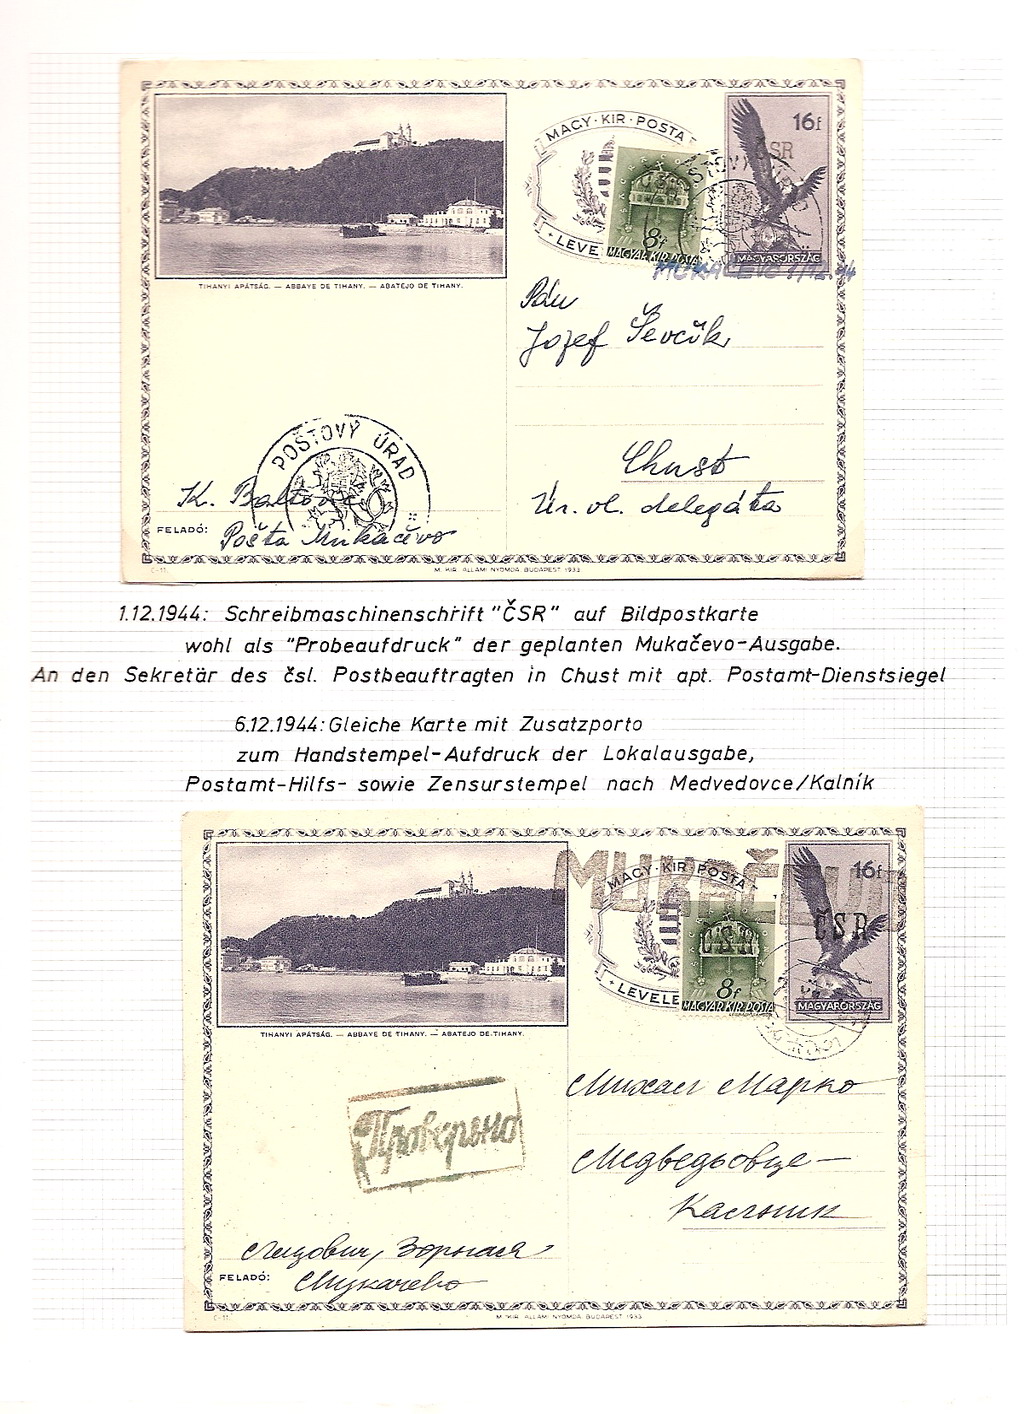 MAGY·KIR·POSTA
16f
ČSR
8f
MAGYAR KIR. POSTA
MAGYARORSZÁG
MUKAČEVO 1/12.44
TIHANYI APÁTSÁG. — ABBAYE DE TIHANY. — ABATEJO DE TIHANY.
Pán
Jozef Ševčík
Chust
Úr. vl. delegáta
POŠTOVÝ ÚRAD
K.
FELADÓ: Pošta Mukačevo
C-11.
M. KIR. ÁLLAMI NYOMDA, BUDAPEST 1933
1.12.1944: Schreibmaschinenschrift "ČSR" auf Bildpostkarte
wohl als "Probeaufdruck" der geplanten Mukačevo-Ausgabe.
An den Sekretär des čsl. Postbeauftragten in Chust mit apt. Postamt-Dienstsiegel
6.12.1944: Gleiche Karte mit Zusatzporto
zum Handstempel-Aufdruck der Lokalausgabe,
Postamt-Hilfs- sowie Zensurstempel nach Medvedovce/Kalník
MUKAČEVO
MAGY·KIR·POSTA
16f
ČSR
ČSR
8f
MAGYAR KIR. POSTA
MAGYARORSZÁG
TIHANYI APÁTSÁG. — ABBAYE DE TIHANY. — ABATEJO DE TIHANY.
Михал Марко
Проверено
Медведьовце —
Кальник
FELADÓ: Мукачево
C-11.
M. KIR. ÁLLAMI NYOMDA, BUDAPEST 1933